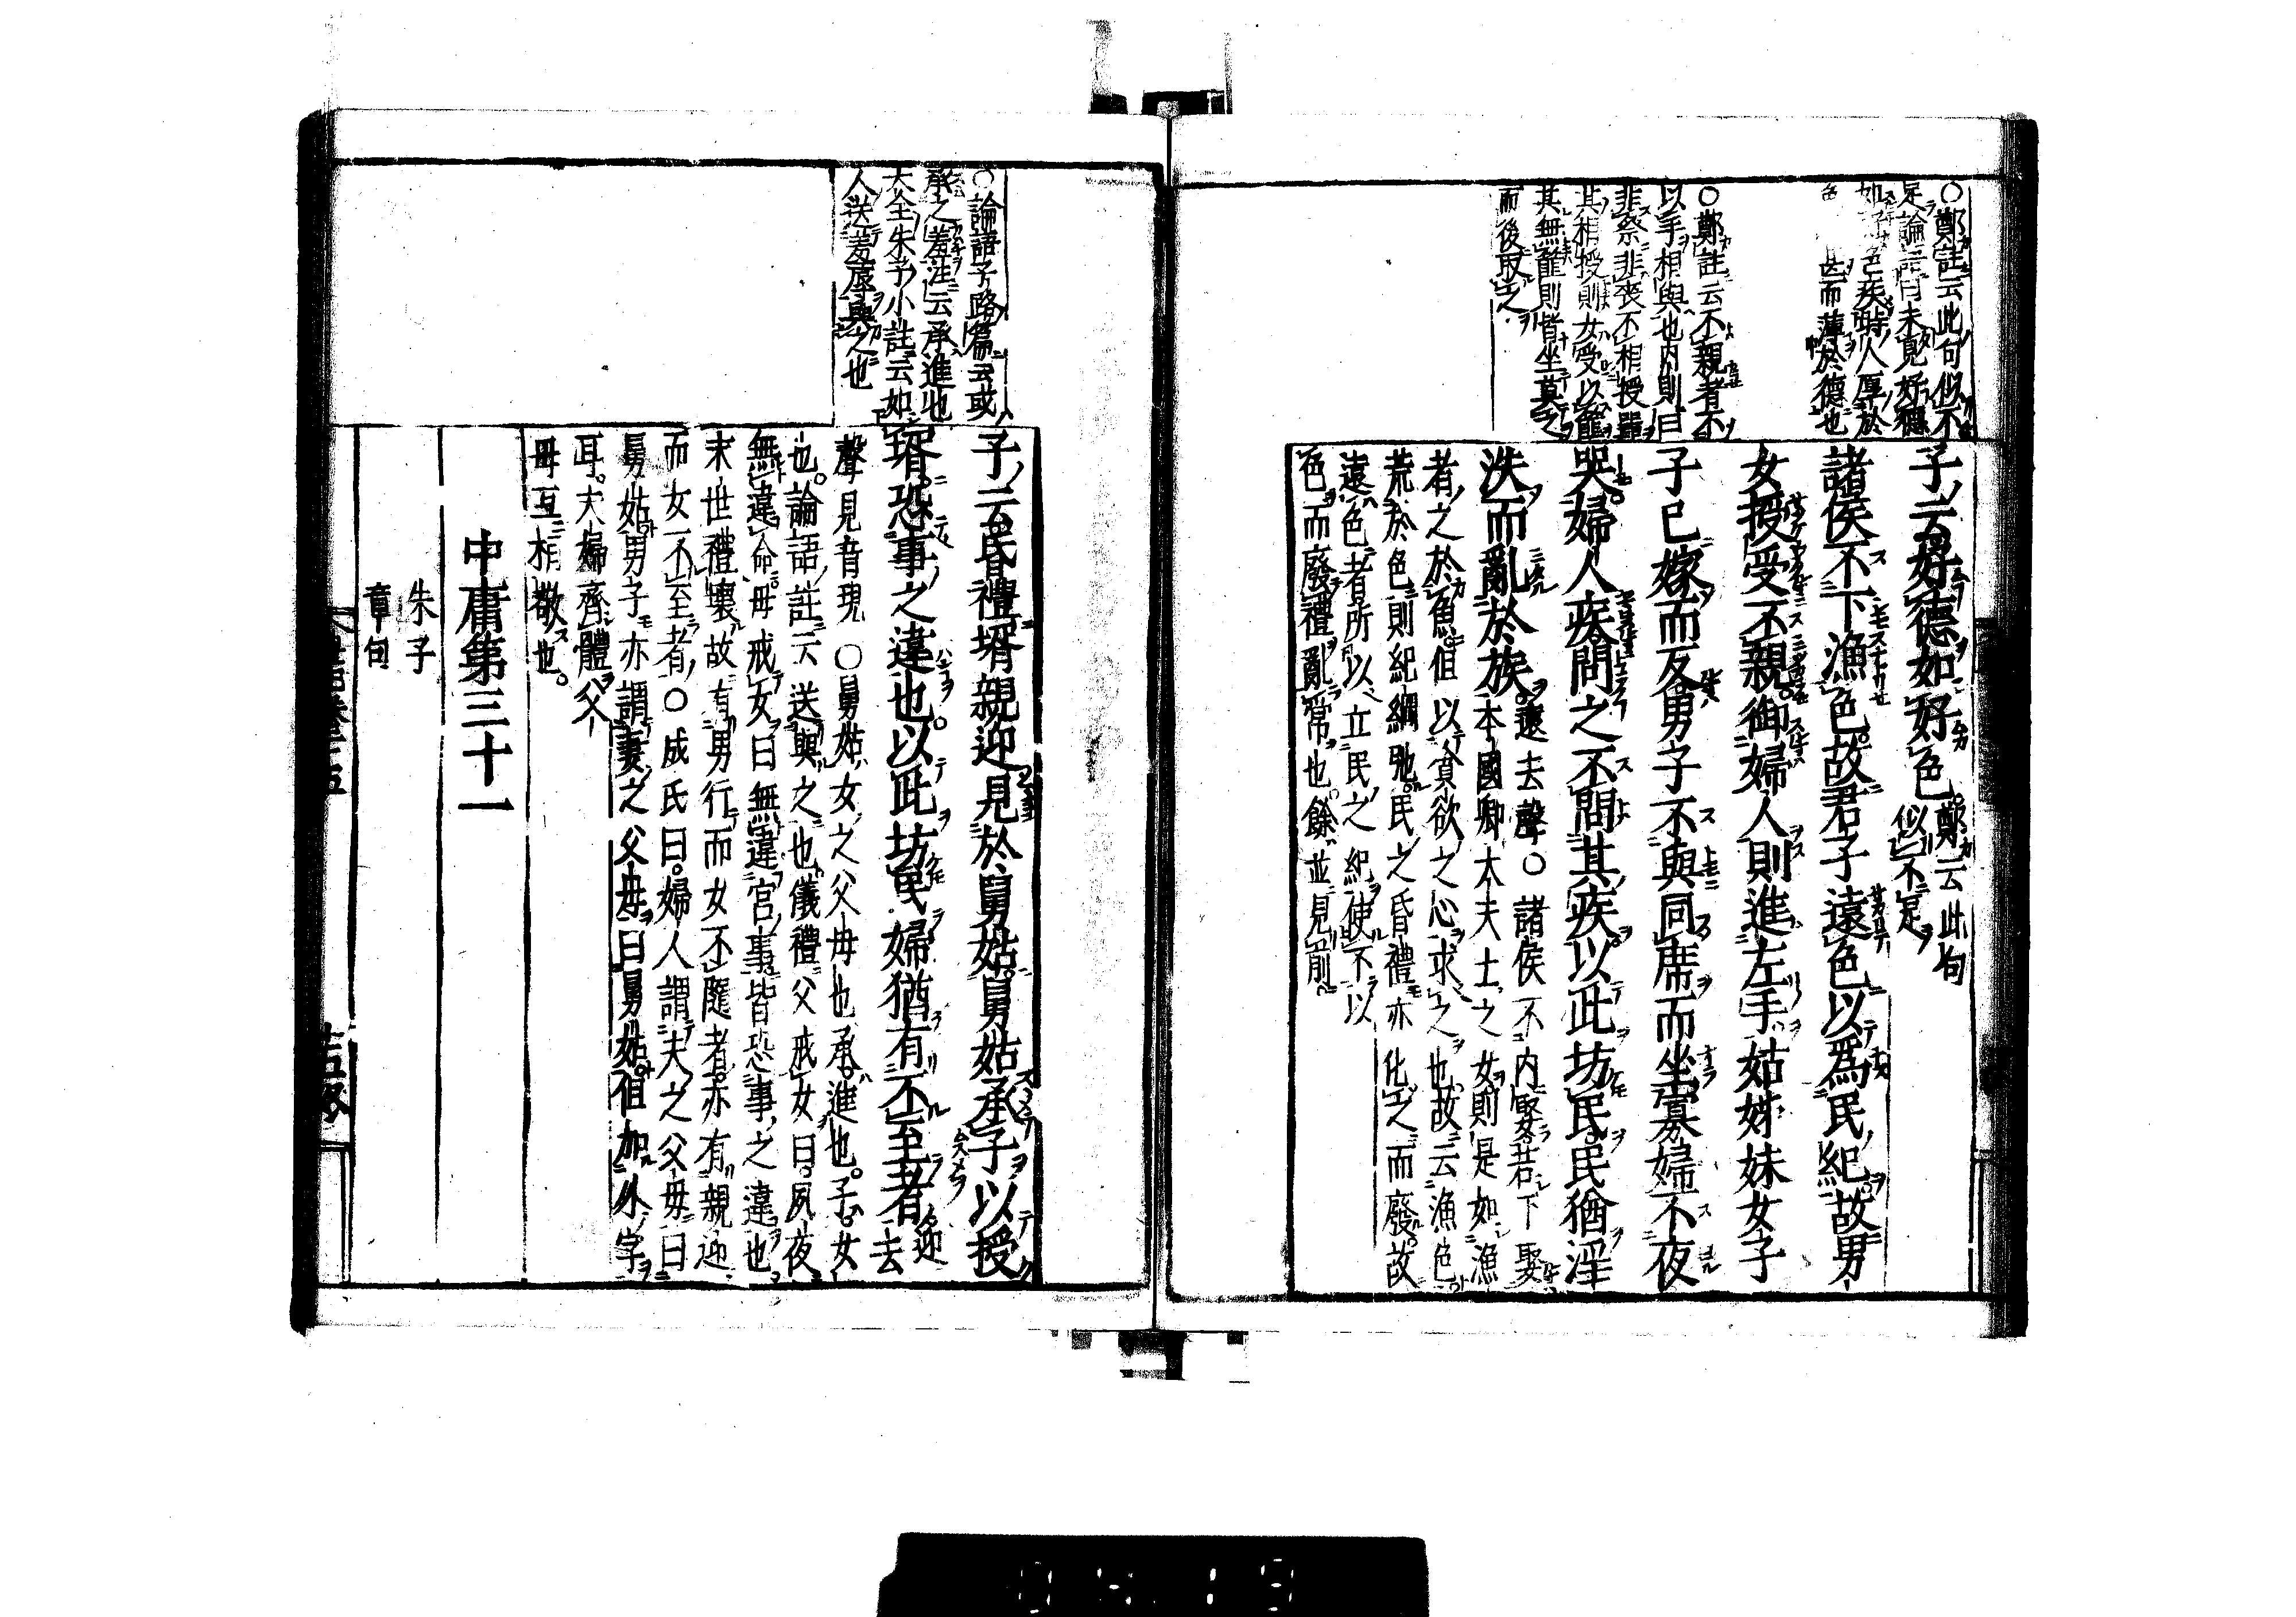 〇鄭註云此句似不
足論語曰未見好德
如好色疾時人厚於
色而薄於德也
〇鄭註云不親者不
以手相與也内則曰
非祭非喪不相授器
其相授則女受以篚
其無篚則皆坐奠之
而後取之
子云好德如好色鄭云此句
似不足
諸侯不下漁色故君子遠色以爲民紀故男
女授受不親御婦人則進左手姑姊妹女子
子已嫁而反男子不與同席而坐寡婦不夜
哭婦人疾問之不問其疾以此坊民民猶淫
泆而亂於族遠去聲〇諸侯不内娶若下娶
本國卿大夫士之女則是如漁
者之於魚但以貪欲之心求之也故云漁色
荒於色則紀綱弛民之昏禮亦化之而廢故
遠色者所以立民之紀使不以
色而廢禮亂常也餘並見前
〇論語子路篇云或
承之羞註云承進也
大全朱子小註云如
人送羞辱與之也
子云昏禮壻親迎見於舅姑舅姑承子以授
壻恐事之違也以此坊民婦猶有不至者迎去
聲見音現〇舅姑女之父母也承進也子女
也論語註云送與之也儀禮父戒女曰夙夜
無違命母戒女曰無違宮事皆恐事之違也
末世禮壞故有男行而女不隨者亦有親迎
而女不至者〇成氏曰婦人謂夫之父母曰
舅姑男子亦謂妻之父母曰舅姑但加外字
耳夫婦齊體父
母互相敬也
中庸第三十一
朱子
章句